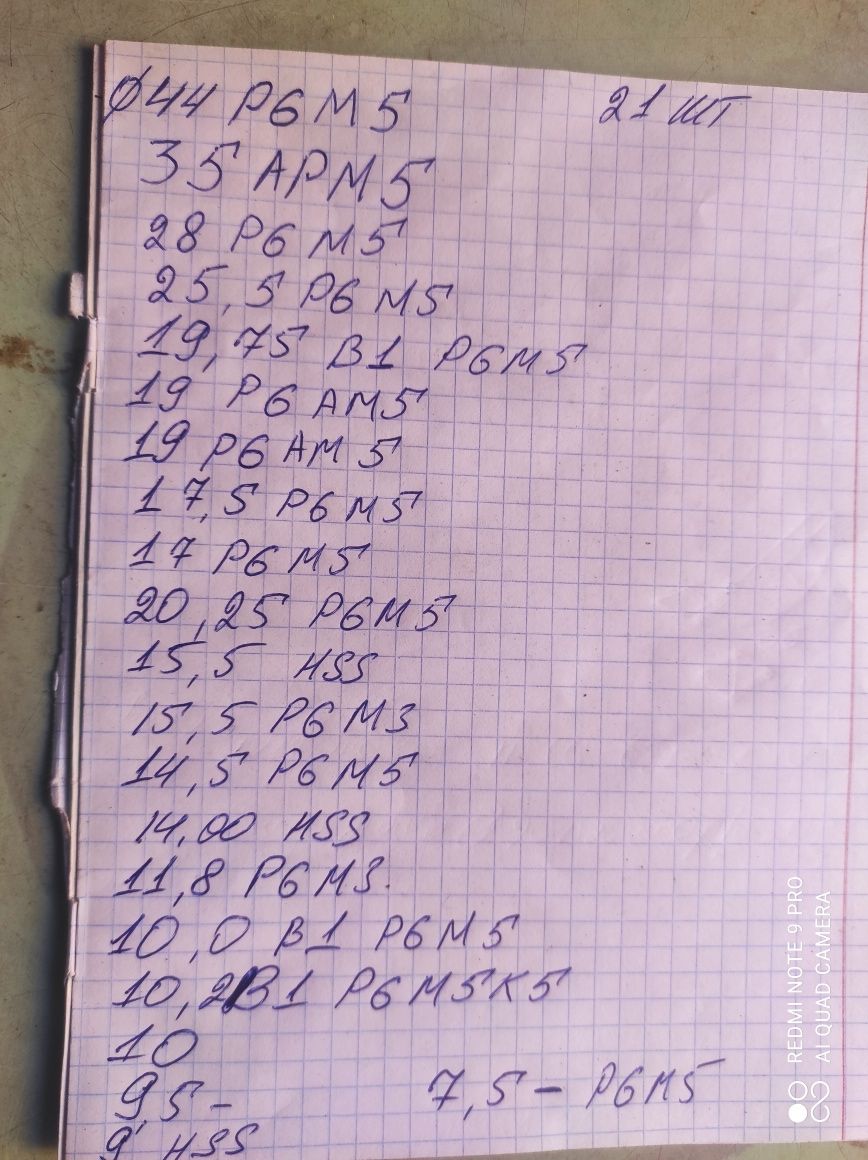 Ø44 Р6М5 21 шт
35 АРМ5
28 Р6М5
25,5 Р6М5
19,75 В1 Р6М5
19 Р6АМ5
19 Р6АМ5
17,5 Р6М5
17 Р6М5
20,25 Р6М5
15,5 HSS
15,5 Р6М3
14,5 Р6М5
14,00 HSS
11,8 Р6М3.
10,0 В1 Р6М5
10,2 В1 Р6М5К5
10
9,5 - 7,5 - Р6М5
9, HSS
REDMI NOTE 9 PRO
AI QUAD CAMERA